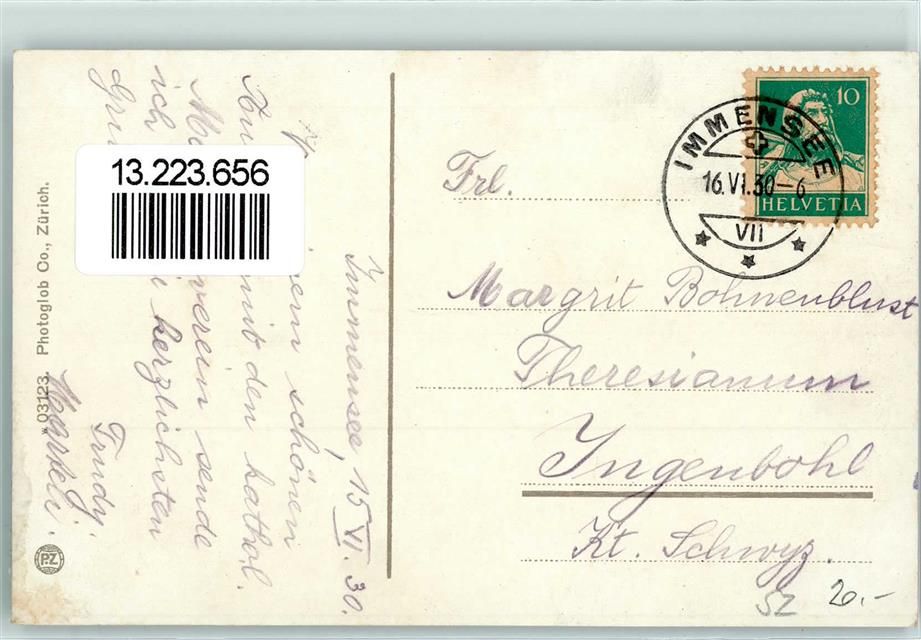 Immensee, 15. VI. 30.
schönen
mit den kathol.
verein sende
ich herzlichsten
Trudy
13.223.656
* 03123. Photoglob Co., Zürich.
P.Z
10
HELVETIA
IMMENSEE
16.VI.30-6
VII
Frl.
Margrit Bohnenblust
Theresianum
Ingenbohl
Kt. Schwyz.
SZ 20.-